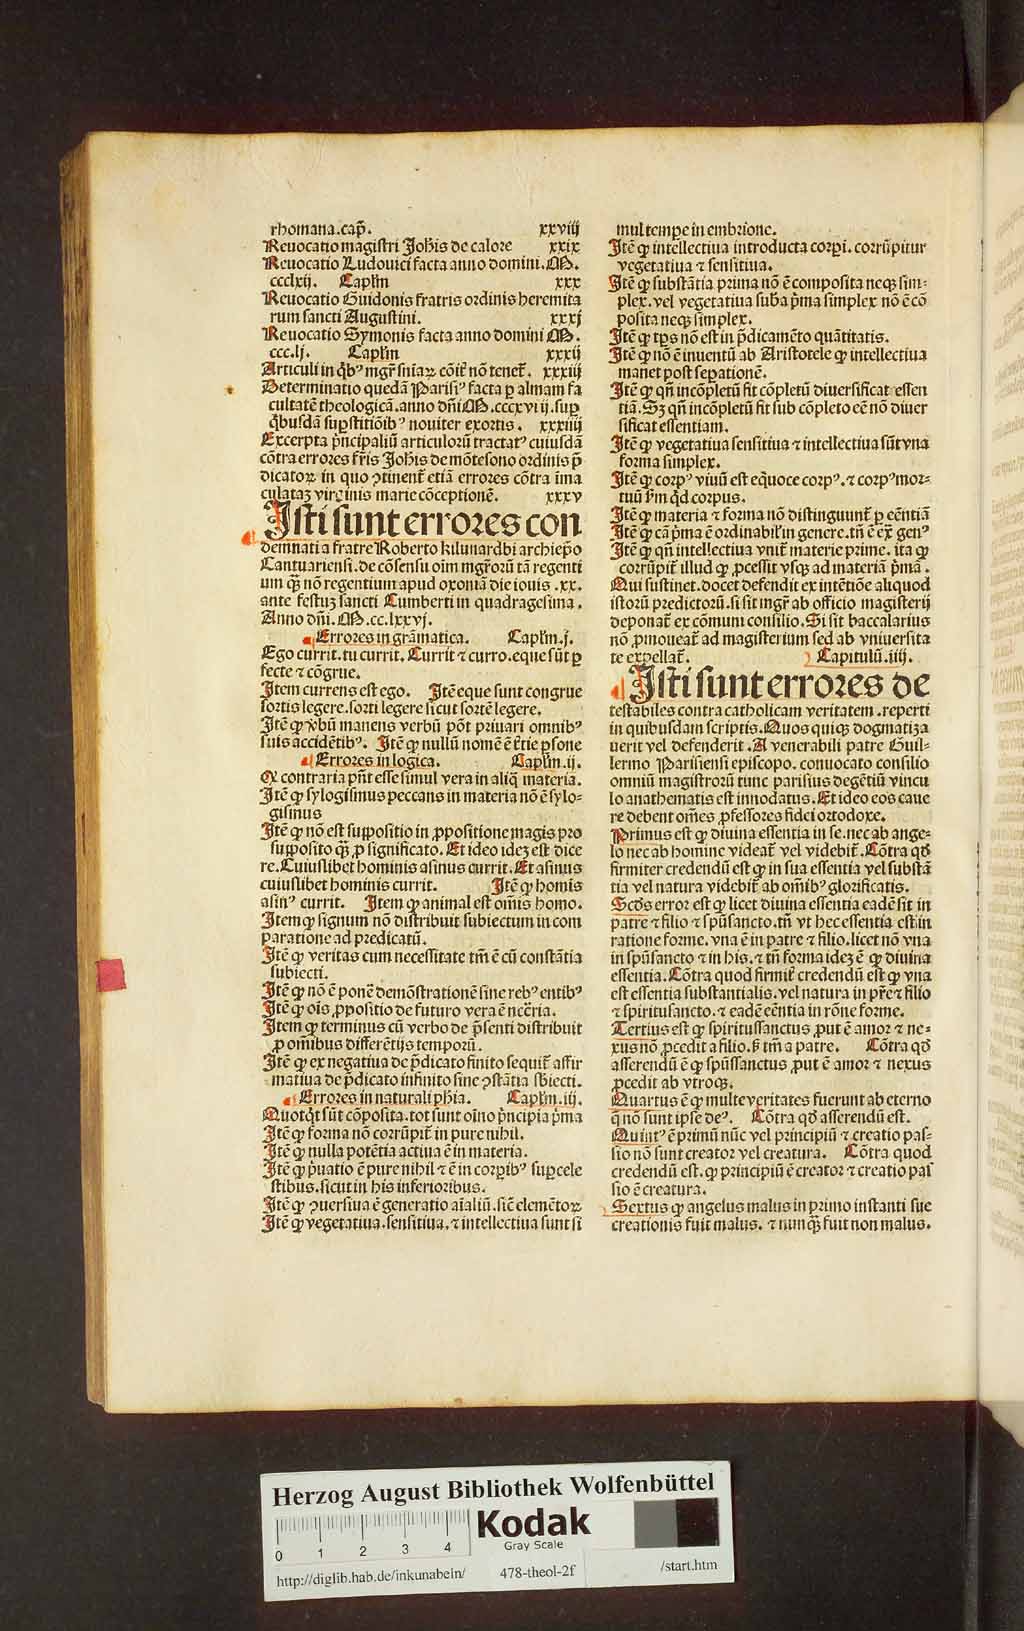 rhomana.cap̃. xxviij
Reuocatio magistri Joh̃is de calore xxix
Reuocatio Ludouici facta anno domini.M.
ccclxij. Caplm̃ xxx
Reuocatio Guidonis fratris ordinis heremita
rum sancti Augustini. xxxj
Reuocatio Symonis facta anno domini M.
ccc.lj. Caplm̃ xxxij
Articuli in q̃bꝰ mgr̃ sniaꝝ cõiƭ nõ tenet᷑. xxxiij
Determinatio quedã Parisiꝰ facta ꝑ almam fa
cultatẽ theologicã.anno dñi M.cccxviij.suꝑ
q̃busdã suꝑstitiõibꝰ nouiter exortis. xxxiiij
Excerpta p̃ncipaliũ articulorũ tractatꝰ cuiusdã
cõtra errores fr̃is Joh̃is de mõtesono ordinis p̃
dicatoꝝ in quo ꝯtinent᷑ etiã errores cõtra ima
culataꝫ virginis marie cõceptionẽ. xxxv
Isti sunt errores con
demnati a fratre Roberto kilunardbi archiep̃o
Cantuariensi.de cõsensu oim mgr̃orũ tã regenti
um qꝫ̃ nõ regentium apud oxoniã die iouis.xx.
ante festuꝫ sancti Cumberti in quadragesima.
Anno dñi.M.cc.lxxvj.
Errores in grãmatica. Caplm̃.j.
Ego currit.tu currit. Currit ⁊ curro.eque sũt ꝑ
fecte ⁊ cõgrue.
Item currens est ego. Itẽ eque sunt congrue
sortis legere.sorti legere sicut sortẽ legere.
Itẽ ꝙ v̾bũ manens verbũ põt priuari omnibꝰ
suis accidẽtibꝰ. Itẽ ꝙ nullũ nomẽ ẽ ƭtie ꝑsone
Errores in logica. Caplm̃.ij.
Q contraria pñt esse simul vera in aliq̃ materia.
Itẽ ꝙ sylogismus peccans in materia nõ ẽ sylo⸗
gismus
Itẽ ꝙ nõ est suppositio in ꝓpositione magis pro
supposito qꝫ̃ ꝓ significato. Et ideo ideꝫ est dice
re.Cuiuslibet hominis asinus currit.Et asinus
cuiuslibet hominis currit. Itẽ ꝙ homis
asinꝰ currit. Item ꝙ animal est om̃is homo.
Item ꝙ signum nõ distribuit subiectum in com
paratione ad predicatũ.
Itẽ ꝙ veritas cum necessitate tm̃ ẽ cũ constãtia
subiecti.
Itẽ ꝙ nõ ẽ ponẽ demõstrationẽ sine rebꝰ entibꝰ
Itẽ ꝙ ois ꝓpositio de futuro vera ẽ nec̃ria.
Item ꝙ terminus cũ verbo de p̃senti distribuit
ꝓ om̃ibus differẽtijs temporũ.
Itẽ ꝙ ex negatiua de p̃dicato finito sequit᷑ affir
matiua de p̃dicato infinito sine ꝯstãtia sb̃iecti.
Errores in naturali ph̃ia. Caplm̃.iij.
Quotq̃t sũt cõposita.tot sunt oĩno p̃ncipia p̃ma
Itẽ ꝙ forma nõ corrũpit᷑ in pure nihil.
Itẽ ꝙ nulla potẽtia actiua ẽ in materia.
Itẽ ꝙ p̃uatio ẽ pure nihil ⁊ ẽ in corꝑibꝰ suꝑcele
stibus.sicut in his inferioribus.
Itẽ ꝙ ꝯuersiua ẽ generatio aĩaliũ.sic̃ elemẽtoꝝ
Itẽ ꝙ vegetatiua.sensitiua.⁊ intellectiua sunt si
mul tempe in embrione.
Itẽ ꝙ intellectiua introducta corꝑi.corrũpitur
vegetatiua ⁊ sensitiua.
Itẽ ꝙ substãtia prima nõ ẽ composita neqꝫ sim⸗
plex.vel vegetatiua sub̃a p̃ma simplex nõ ẽ cõ
posita neqꝫ simplex.
Itẽ ꝙ tp̃s nõ est in p̃dicamẽto quãtitatis.
Itẽ ꝙ nõ ẽ inuentũ ab Aristotele ꝙ intellectiua
manet post seꝑationẽ.
Itẽ ꝙ qñ incõpletũ fit cõpletũ diuersificat᷑ essen
tiã.Sꝫ qñ incõpletũ fit sub cõpleto eẽ nõ diuer
sificat essentiam.
Itẽ ꝙ vegetatiua sensitiua ⁊ intellectiua sũt vna
forma simplex.
Itẽ ꝙ corpꝰ viuũ est eq̃uoce corpꝰ.⁊ corpꝰ mor⸗
tuũ ẜm q̃d corpus.
Itẽ ꝙ materia ⁊ forma nõ distinguunt᷑ ꝑ eẽntiã
Itẽ ꝙ cã p̃ma ẽ ordinabil̃ in genere.tñ ẽ ex̃ genꝰ
Itẽ ꝙ qñ intellectiua vnit᷑ materie prime.ita ꝙ
corrũpit᷑ illud ꝙ ꝓcessit vsqꝫ ad materiã p̃mã.
Qui sustinet.docet defendit ex intẽtiõe aliquod
istorũ predictorũ.si sit mgr̃ ab officio magisterij
deponat᷑ ex cõmuni consilio.Si sit baccalarius
nõ ꝓmoueat᷑ ad magisterium sed ab vniuersita
te expellat᷑. Capitulũ.iiij.
Isti sunt errores de
testabiles contra catholicam veritatem.reperti
in quibusdam scriptis.Quos quiqꝫ dogmatiza
uerit vel defenderit.A venerabili patre Guil⸗
lermo Parisiensi episcopo.conuocato consilio
omniũ magistrorũ tunc parisius degẽtiũ vincu
lo anathematis est innodatus.Et ideo eos caue
re debent om̃es ꝓfessores fidei ortodoxe.
Primus est ꝙ diuina essentia in se.nec ab ange⸗
lo nec ab homine videat᷑ vel videbit᷑.Cõtra qd̃
firmiter credendũ est ꝙ in sua essentia vel substã
tia vel natura videbit᷑ ab om̃ibꝰ glorificatis.
Scd̃s error est ꝙ licet diuina essentia eadẽ sit in
patre ⁊ filio ⁊ sp̃usancto.tñ vt hec essentia est in
ratione forme.vna ẽ in patre ⁊ filio.licet nõ vna
in sp̃usancto ⁊ in his.⁊ tñ forma ideꝫ ẽ ꝙ diuina
essentia.Cõtra quod firmiƭ credendũ est ꝙ vna
est essentia substantialis.vel natura in pr̃e ⁊ filio
⁊ spiritusancto.⁊ eadẽ eẽntia in rõne forme.
Tertius est ꝙ spiritussanctus ꝓut ẽ amor ⁊ ne⸗
xus nõ ꝓcedit a filio.ẜ tm̃ a patre. Cõtra qd̃
asserendũ ẽ ꝙ sp̃ussanctus ꝓut ẽ amor ⁊ nexus
ꝓcedit ab vtroqꝫ.
Quartus ẽ ꝙ multe veritates fuerunt ab eterno
q̃ nõ sunt ipse deꝰ. Cõtra qd̃ asserendũ est.
Quintꝰ ẽ primũ nũc vel principiũ ⁊ creatio pas⸗
sio nõ sunt creator vel creatura. Cõtra quod
credendũ est.ꝙ principiũ ẽ creator ⁊ creatio pas
sio ẽ creatura.
Sextus ꝙ angelus malus in primo instanti sue
creationis fuit malus.⁊ nunqꝫ̃ fuit non malus.
Herzog August Bibliothek Wolfenbüttel
Kodak
Gray Scale
0 1 2 3 4
http://diglib.hab.de/inkunabeln/ 478-theol-2f /start.htm